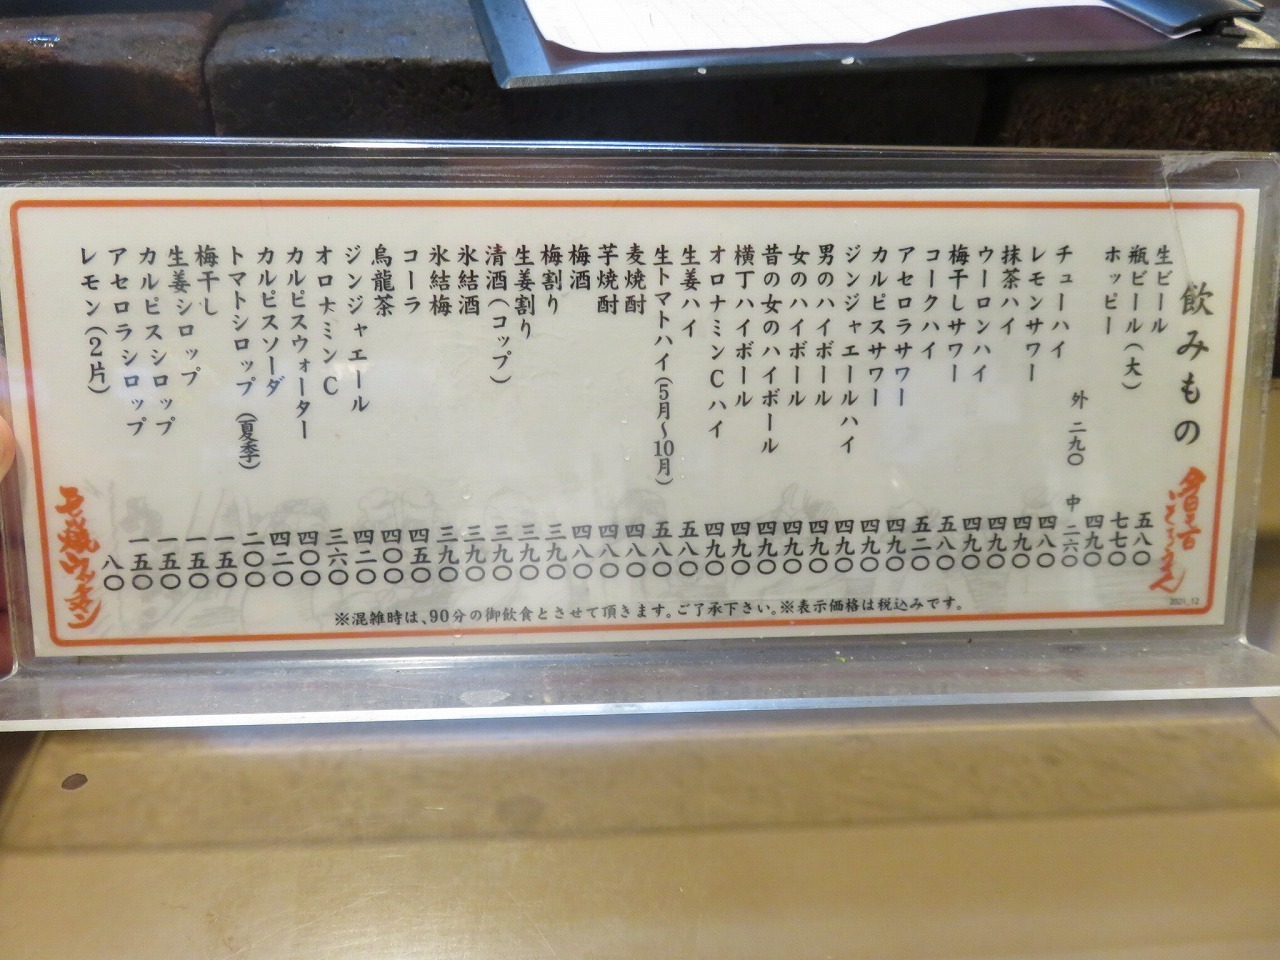 飲みもの
生ビール 五八〇
瓶ビール(大) 七七〇
ホッピー 四九〇
外 二九〇 中 二六〇
チューハイ 四八〇
レモンサワー 四九〇
抹茶ハイ 四九〇
ウーロンハイ 四九〇
梅干しサワー 五八〇
コークハイ 五二〇
アセロラサワー 四九〇
カルピスサワー 四九〇
ジンジャエールハイ 四九〇
男のハイボール 四九〇
女のハイボール 四九〇
昔の女のハイボール 四九〇
横丁ハイボール 四九〇
オロナミンCハイ 四九〇
生姜ハイ 五八〇
生トマトハイ(5月〜10月) 五八〇
麦焼酎 四八〇
芋焼酎 四八〇
梅酒 四八〇
梅割り 三九〇
生姜割り 三九〇
清酒(コップ) 三九〇
氷結酒 三九〇
氷結梅 三九〇
コーラ 四五〇
烏龍茶 四〇〇
ジンジャエール 四二〇
オロナミンC 三六〇
カルピスウォーター 四〇〇
カルピスソーダ 四二〇
トマトシロップ(夏季) 二〇〇
梅干し 一五〇
生姜シロップ 一五〇
カルピスシロップ 一五〇
アセロラシロップ 一五〇
レモン(2片) 八〇
※混雑時は、90分の御飲食とさせて頂きます。ご了承下さい。※表示価格は税込みです。
2021_12